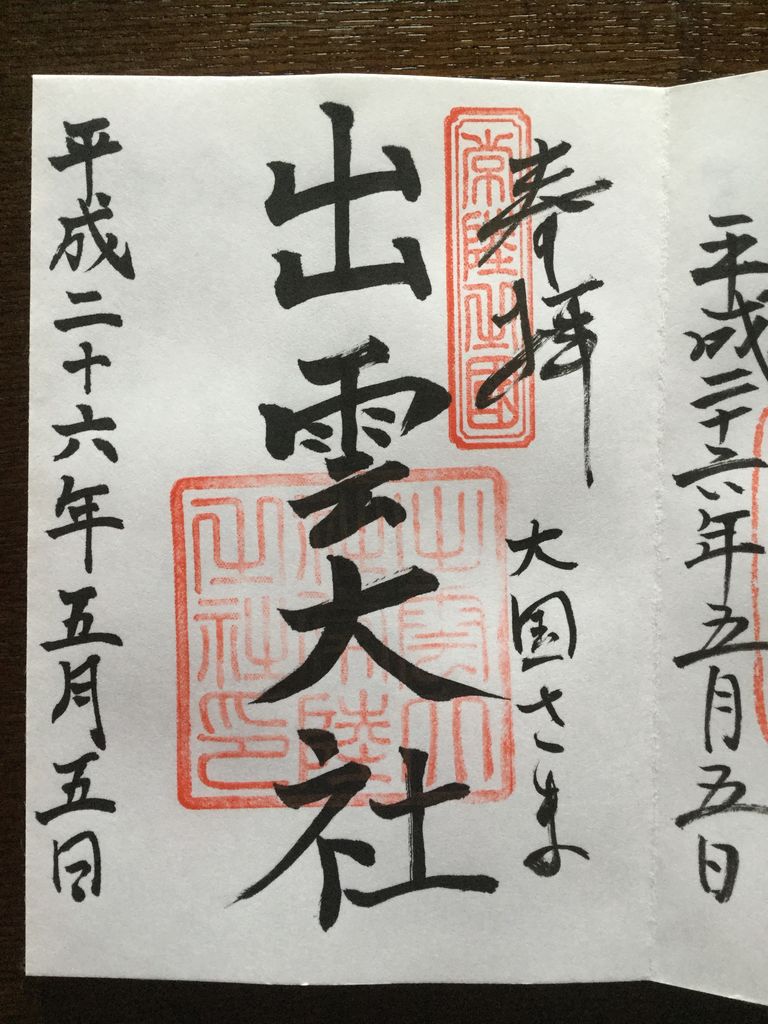 平成二十六年五月五日
奉拝
大国さま
常陸之國
出雲大社
平成二十六年五月五日